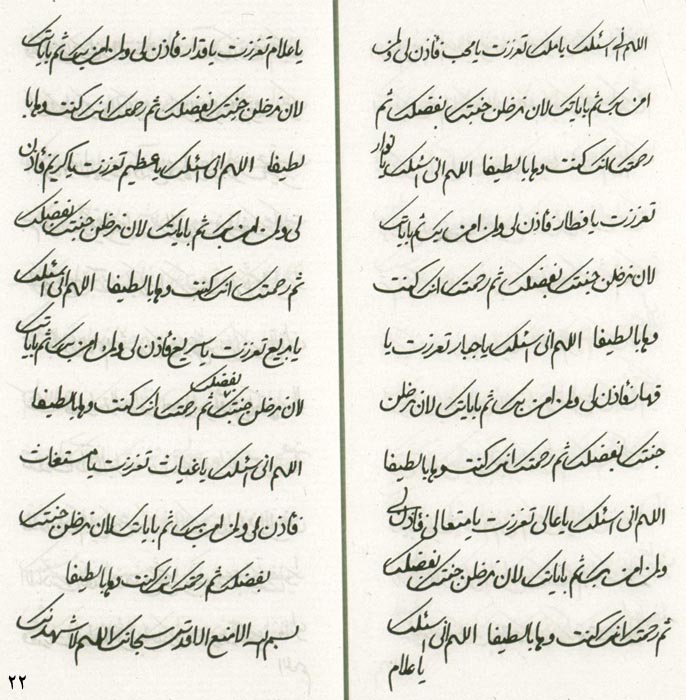 اللهم انى اسئلك يا ملك تعززت يا محب فأذن لى ولمن
امن بك ثم باياتك لان ندخلن جنتك بفضلك ثم
رحمتك انك كنت وهابا لطيفا اللهم انى اسئلك يا نوار
تعززت يا فطار فأذن لى ولمن امن بك ثم باياتك
لان ندخلن جنتك بفضلك ثم رحمتك انك كنت
وهابا لطيفا اللهم انى اسئلك يا جبار تعززت يا
قهار فأذن لى ولمن امن بك ثم باياتك لان ندخلن
جنتك بفضلك ثم رحمتك انك كنت وهابا لطيفا
اللهم انى اسئلك يا عالى تعززت يا متعالى فأذن لى
ولمن امن بك ثم باياتك لان ندخلن جنتك بفضلك
ثم رحمتك انك كنت وهابا لطيفا اللهم انى اسئلك
يا علام
يا علام تعززت يا قدار فأذن لى ولمن امن بك ثم باياتك
لان ندخلن جنتك بفضلك ثم رحمتك انك كنت وهابا
لطيفا اللهم انى اسئلك يا عظيم تعززت يا كريم فأذن
لى ولمن امن بك ثم باياتك لان ندخلن جنتك بفضلك
ثم رحمتك انك كنت وهابا لطيفا اللهم انى اسئلك
يا بديع تعززت يا سريع فأذن لى ولمن امن بك ثم باياتك
لان ندخلن جنتك بفضلك ثم رحمتك انك كنت وهابا لطيفا
اللهم انى اسئلك يا غياث تعززت يا مستغاث
فأذن لى ولمن امن بك ثم باياتك لان ندخلن جنتك
بفضلك ثم رحمتك انك كنت وهابا لطيفا
بسم الله الامنع الاقدس سبحانك اللهم لاشهدنك
٢٢